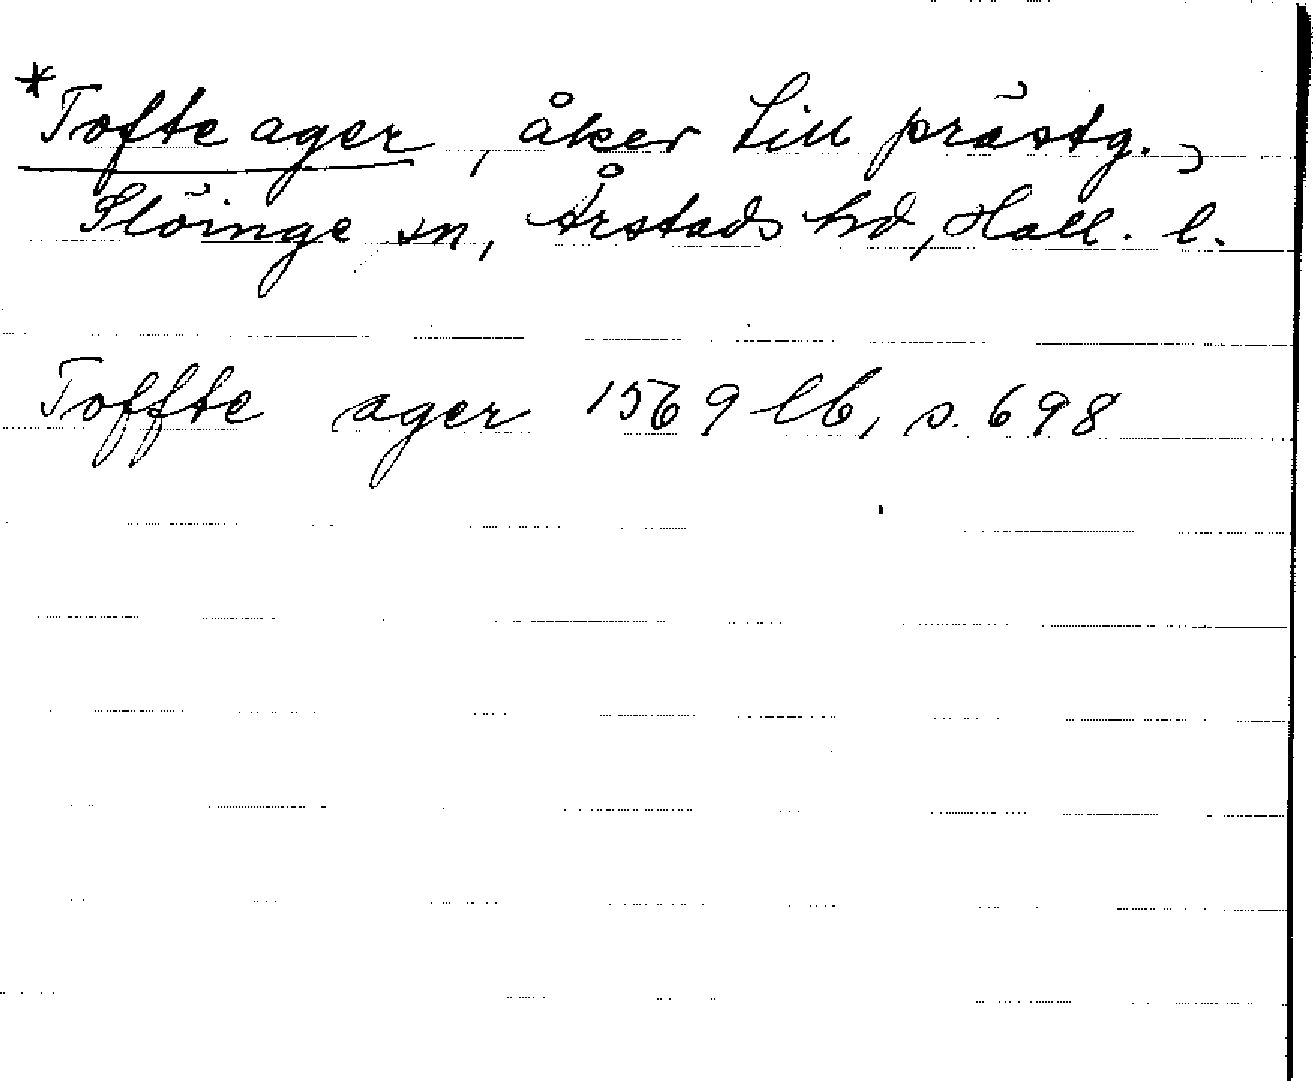 *Tofte ager, åker till prästg.,
Slöinge sn, Årstads hd, Hall. l.
Toffte ager 1569 lb, s. 698